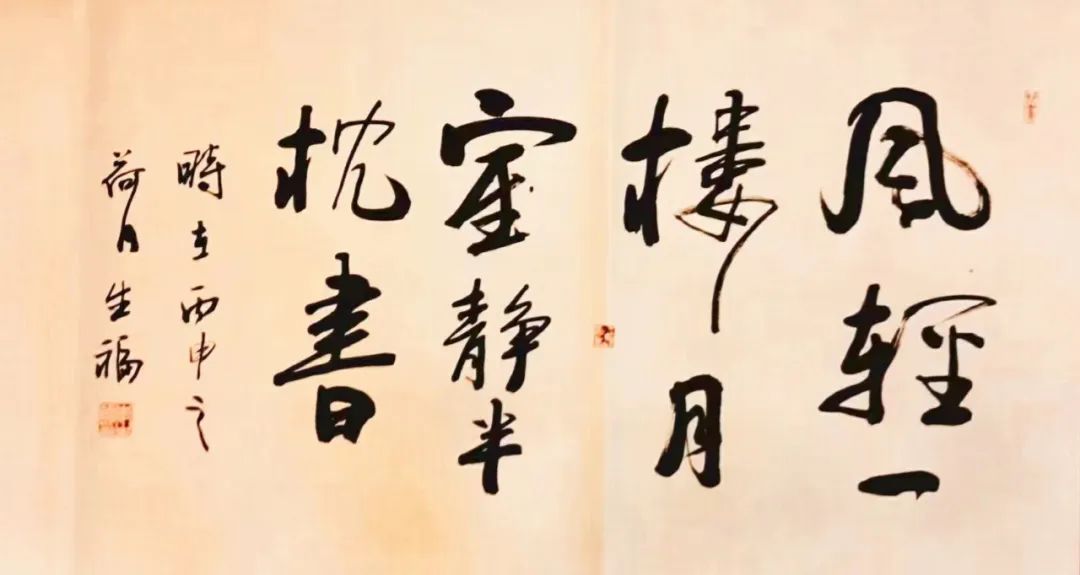 風輕一
樓月
室靜半
枕書
時在丙申之
荷月生福